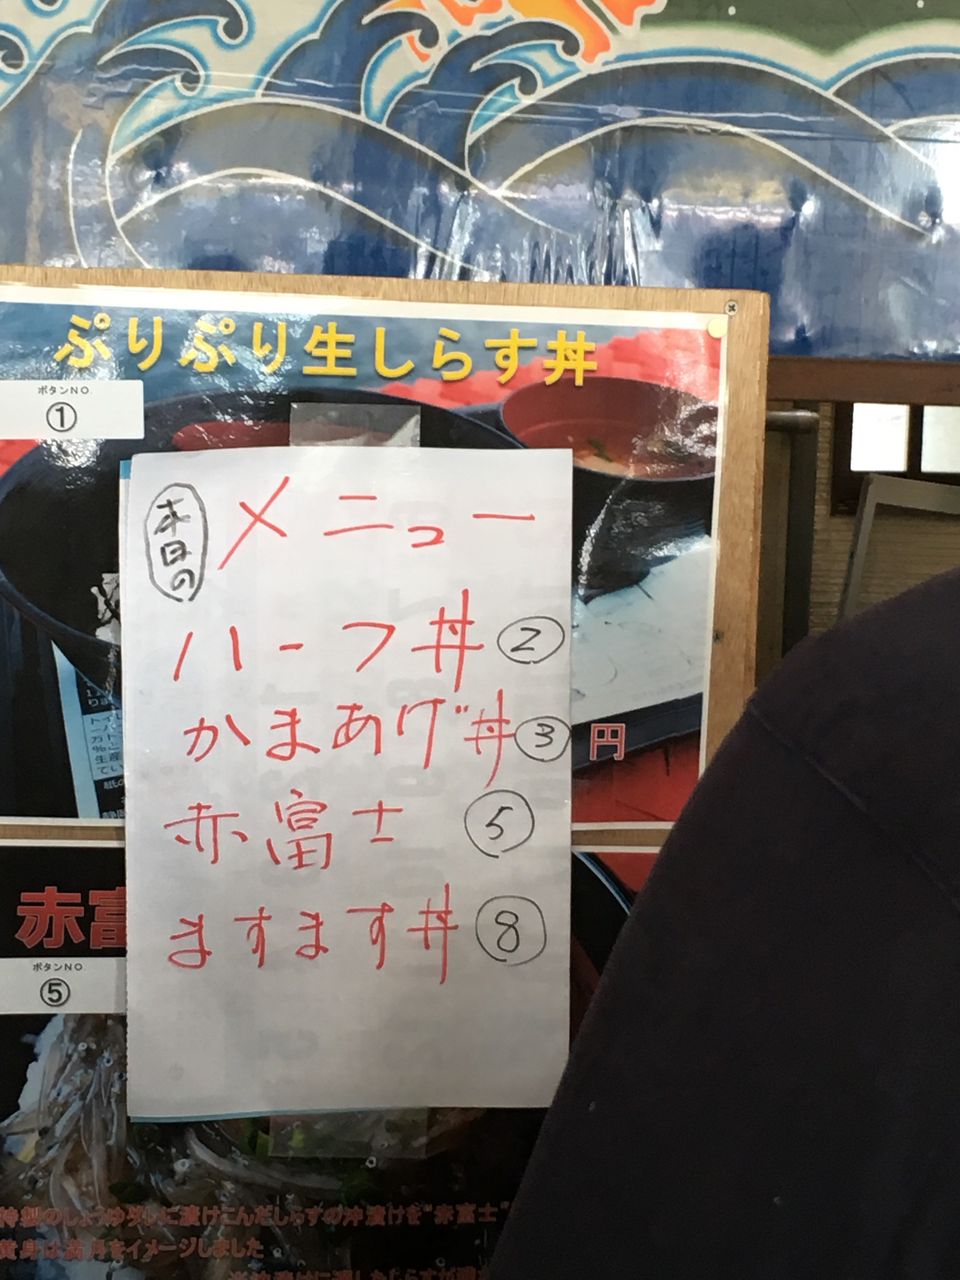 ぷりぷり生しらす丼
ボタンNO.
①
本日の
メニュー
ハーフ丼②
かまあげ丼③
円
赤富士⑤
ますます丼⑧
赤富
ボタンNO
⑤
特製のしょうゆダレに漬けこんだしらすの沖漬けを"赤富士"
黄身は満月をイメージしました